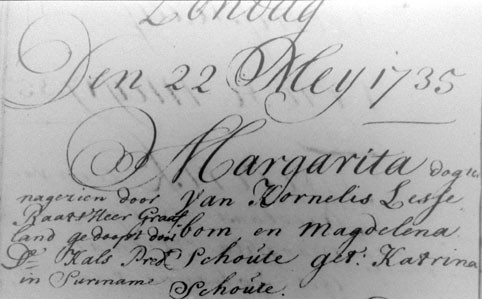 Zondag
Den 22 Mey 1735
Margarita dogter
van Kornelis Lesse
bom, en Magdelena
Schoúte get: Katrina
Schoúte.
nagezien door
Raatsheer Graaf
land gedoopt door
Ds. Kals Pred.
in Suriname